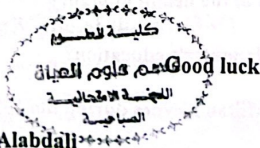 كلية العلوم
قسم علوم الحياة
Good luck
اللجنة الامتحانية
الصباحية
Alabdali